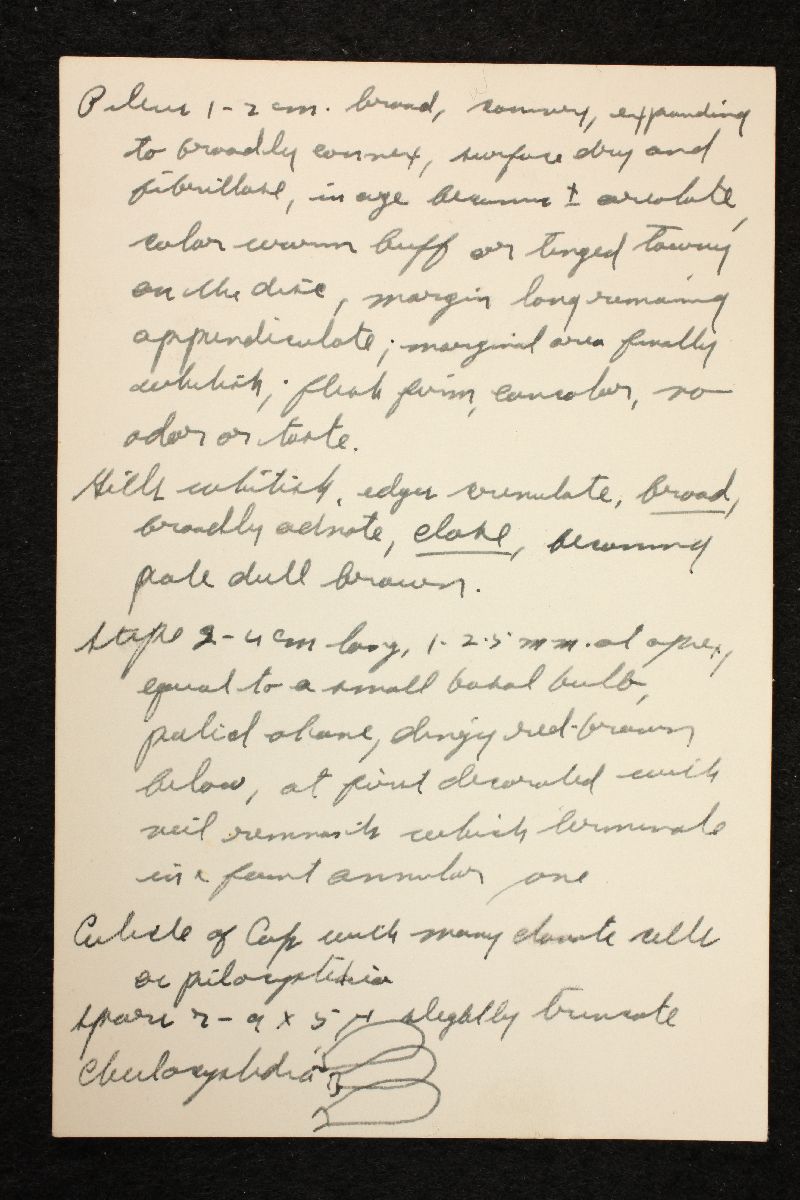 Pileus 1-2 cm. broad, conver, expanding
to broadly convex, surface dry and
fibrillose, in age becomes ± areolate,
color warm buff or tinged tawny
on the disc, margin long remaining
appendiculate; marginal area finally
whitish; flesh firm, concolor, no
odor or taste.
Gills whitish, edges crenulate, broad,
broadly adnate, close, becoming
pale dull brown.
Stipe 2-4 cm long, 1-2.5 mm. at apex,
equal to a small basal bulb,
pallid above, dingy red-brown
below, at first decorated with
veil remnants which terminate
in a faint annular zone
Cuticle of Cap with many clavate cells
or pilocystidia
Spores 7-9 x 5 µ slightly truncate
Cheilocystidia